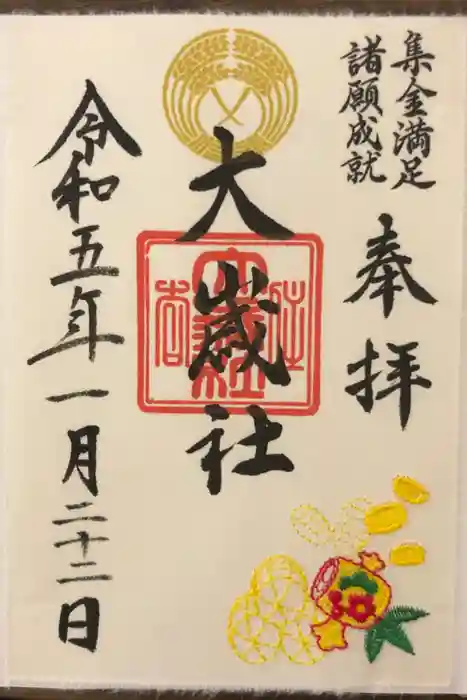 集金満足
諸願成就
奉拝
大歳社
令和五年一月二十二日